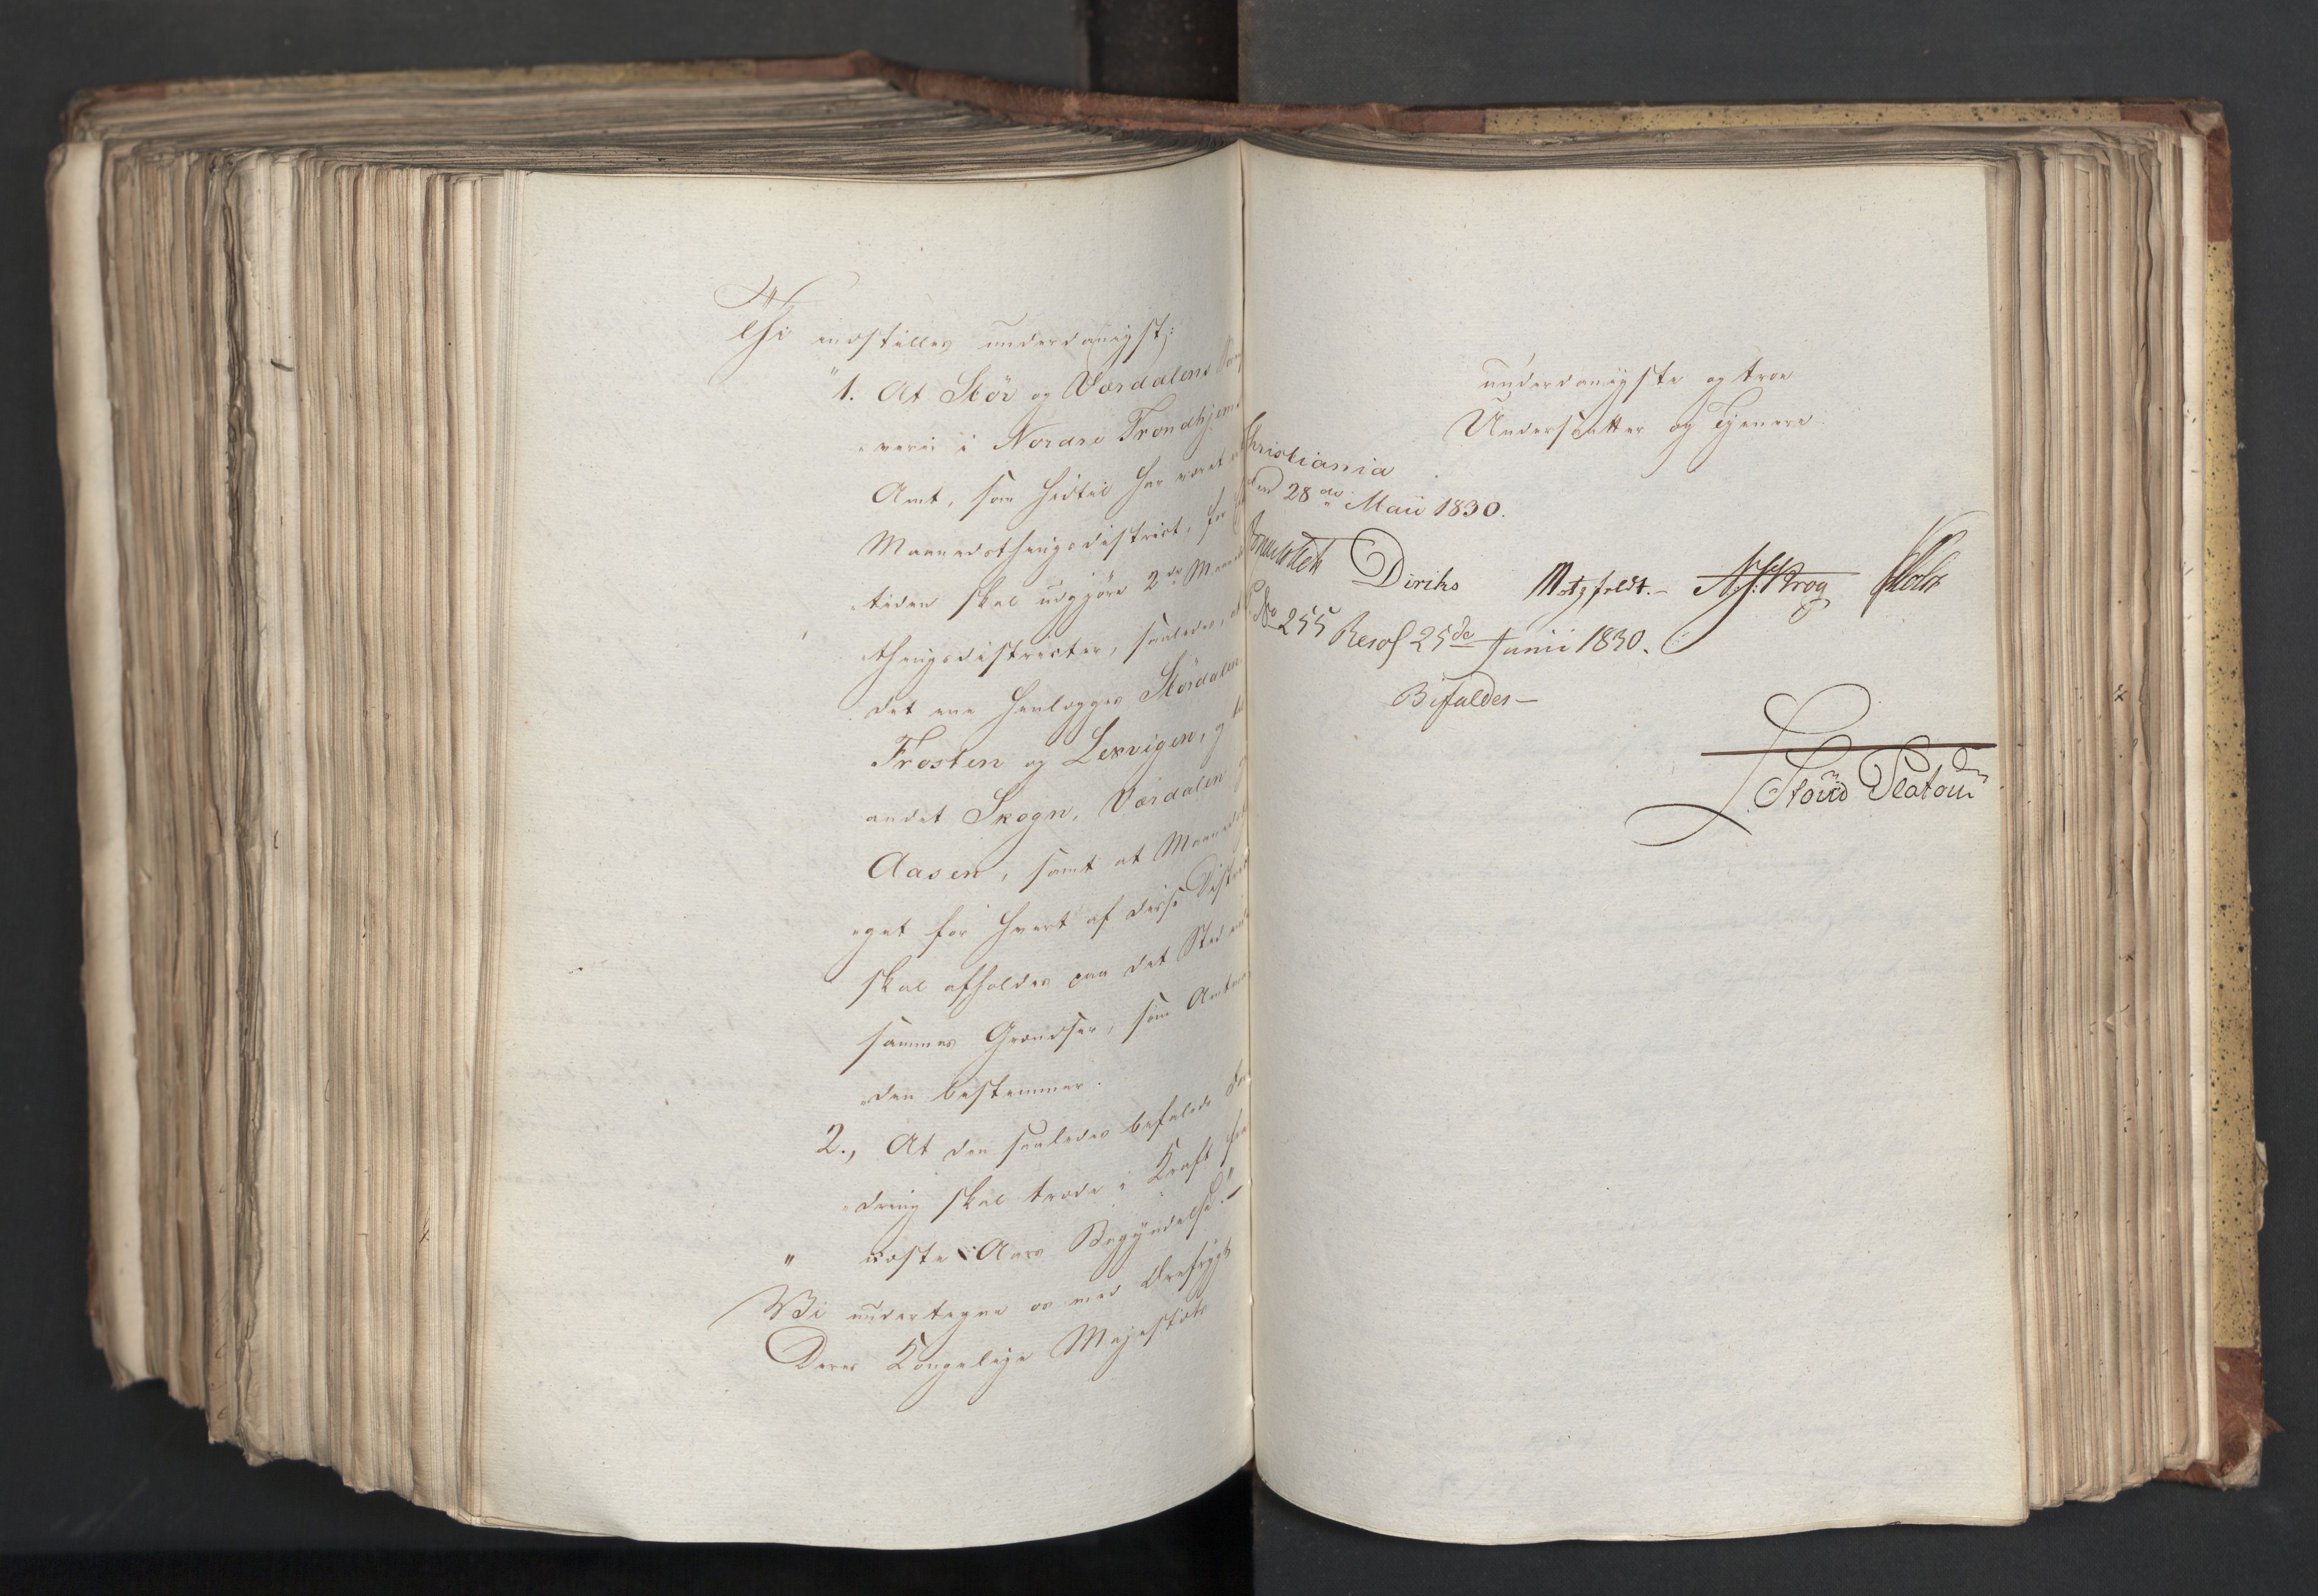 Thi indstilles underdanigst:
"1. At Stör og Værdalens
verie i Nordre Trondhjems
Amt, som hidtil har været
Maanedsthingsdistrict, for
tiden skal udgjöre 2de Maaneds
thingsdistricter, saaledes, at
det ene henlægges Stördalen
Frosten og Lexvigen, og
andet Skogn, Værdalen og
Aasen, samt at Maaneds
get for hvert af disse Distric
skal afholdes paa det Sted
sammes Grændser, som Amtm
den bestemmer.
2., At den saaledes befalede
dring skal træde i Kraft fra
" næste Aars Begyndelse."
Vi undertegne os med Ærefrygt
Deres Kongelige Majestæts
underdanigste og troe
Undersaatter og Tjenere
Christiania
den 28de Maii 1830.
Diriks Motzfeldt. Krog Holst
No 255 Resol 25de Junii 1830.
Bifaldes